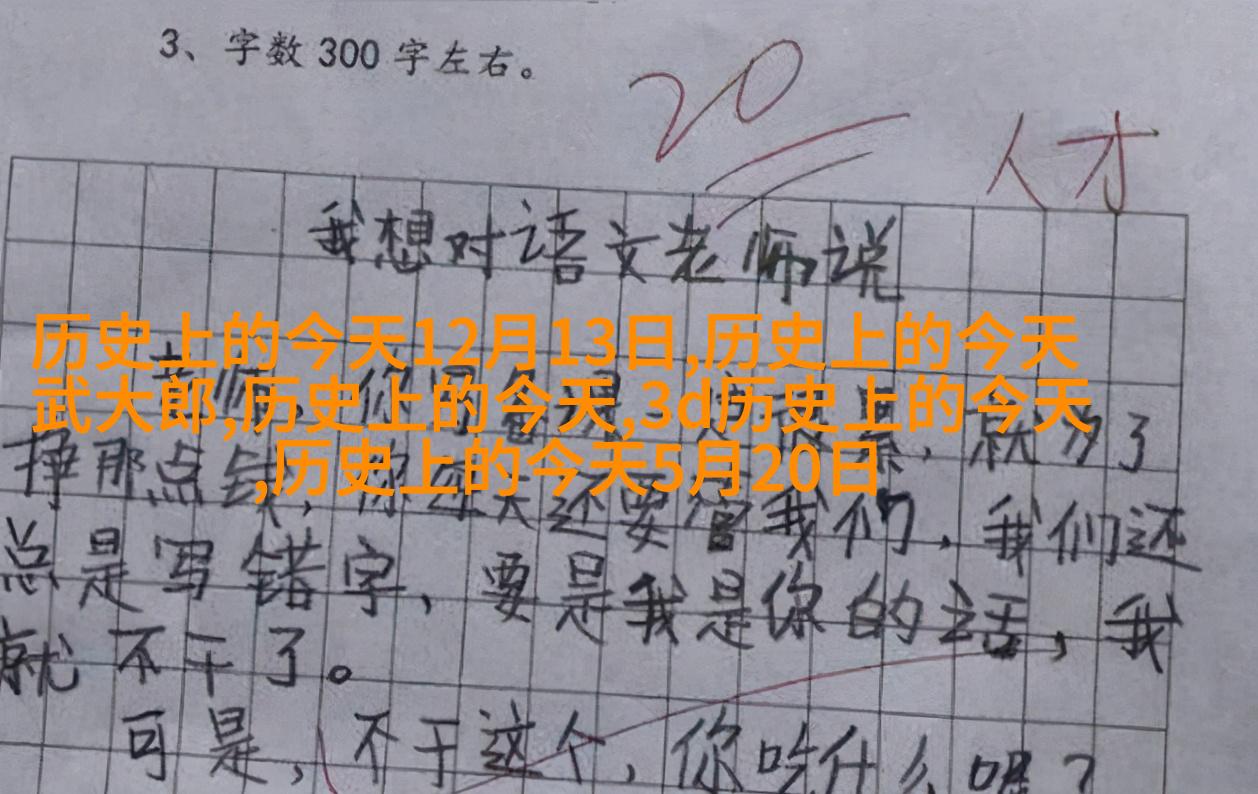 3、字数 300 字左右。
20
人才
我想对语文老师说
历史上的今天12月13日,历史上的今天
武大郎,历史上的今天,3d历史上的今天
,历史上的今天5月20日
老师,你
就为了
挣那点钱,你每天还要管我们,我们还
总是写错字,要是我是你的话,我
就不干了。
可是,不干这个,你吃什么呢?